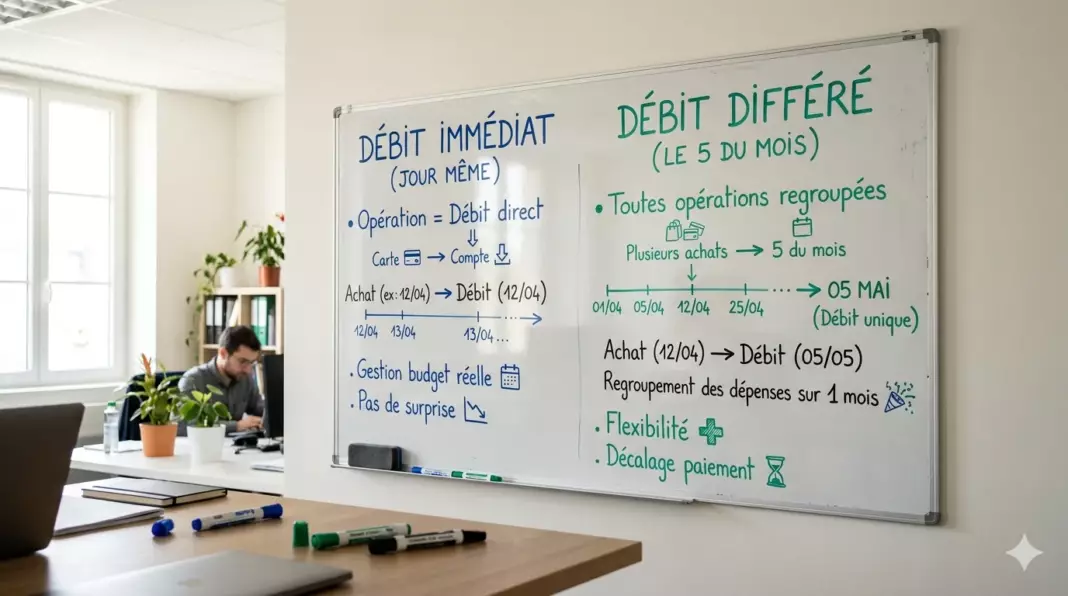 DÉBIT IMMÉDIAT
(JOUR MÊME)
• Opération = Débit direct
Carte → Compte
Achat (ex: 12/04) → Débit (12/04)
12/04 13/04 13/04 ...
• Gestion budget réelle
• Pas de surprise
DÉBIT DIFFÉRÉ
(LE 5 DU MOIS)
• Toutes opérations regroupées
Plusieurs achats → 5 du mois
01/04 05/04 12/04 25/04 ... → 05 MAI
(Débit unique)
Achat (12/04) → Débit (05/05)
Regroupement des dépenses sur 1 mois
• Flexibilité
• Décalage paiement